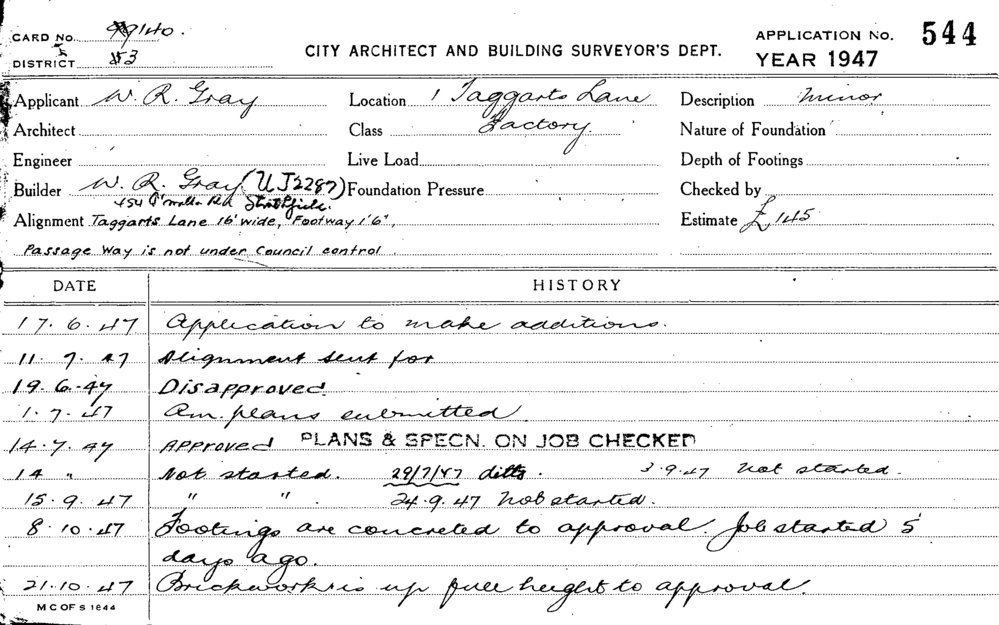 CARD No. 99140.
CITY ARCHITECT AND BUILDING SURVEYOR'S DEPT.
APPLICATION No. 544
DISTRICT 53
YEAR 1947
Applicant W. R. Gray Location 1 Taggarts Lane Description minor
Architect Class Factory. Nature of Foundation
Engineer Live Load Depth of Footings
Builder W. R. Gray (UJ2287) Foundation Pressure Checked by
454 Rd Strathfield.
Alignment Taggarts Lane 16' wide, Footway 1'6", Estimate £145
Passage Way is not under Council control
DATE HISTORY
17.6.47 Application to make additions.
11.7.47 Alignment sent for
19.6.47 Disapproved.
1.7.47 Am. plans submitted
14.7.47 APPROVED PLANS & SPECN. ON JOB CHECKED
14 " Not started. 29/7/47 ditto. 3.9.47 Not started.
15.9.47 " " . 24.9.47 Not started.
8.10.47 Footings are concreted to approval. Job started 5
days ago.
21.10.47 Brickwork is up full height to approval.
M C OF S 1844